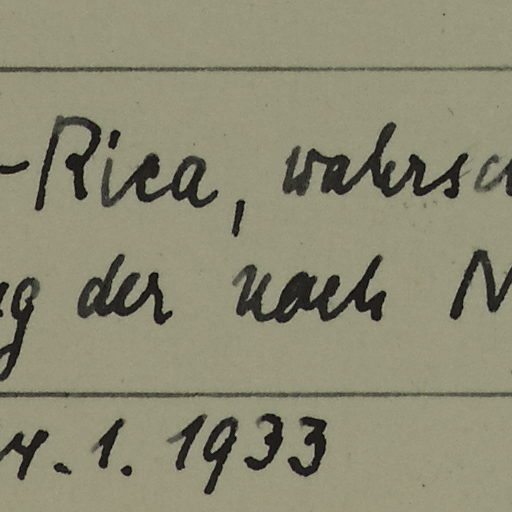 -Rica, wahrsc
ng der nach N
4.1.1933